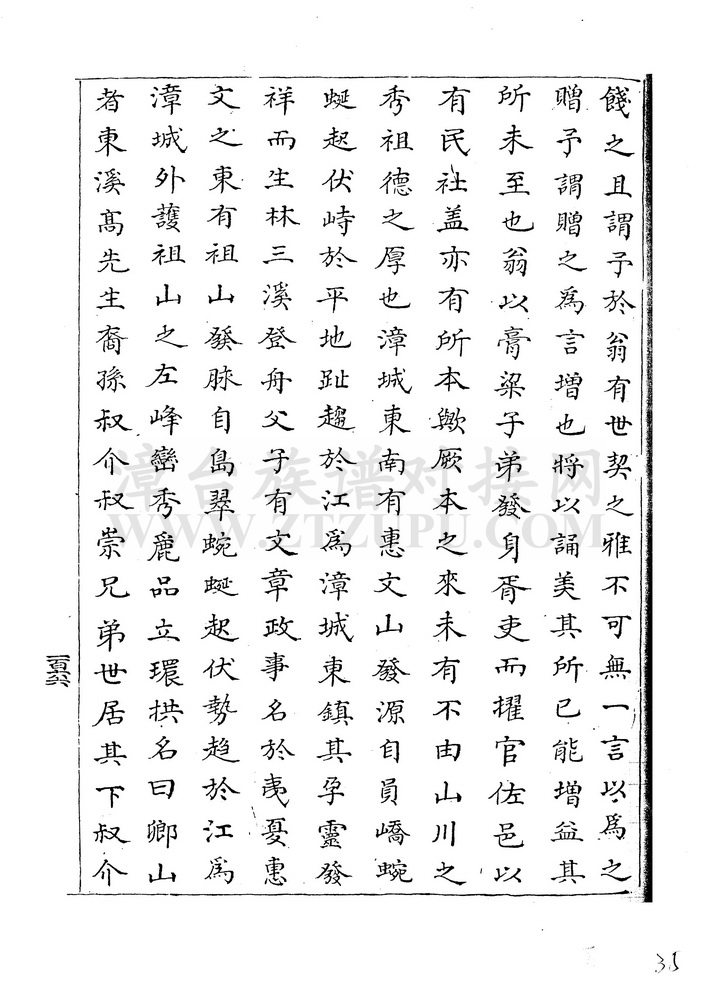 餞之且謂予於翁有世契之雅不可無一言以為之
贈予謂贈之為言增也將以誦美其所已能增益其
所未至也翁以膏粱子弟發身胥吏而擢官佐邑以
有民社盖亦有所本歟厥本之來未有不由山川之
秀祖德之厚也漳城東南有惠文山發源自員嶠蜿
蜒起伏峙於平地趾趨於江為漳城東鎮其孕靈發
祥而生林三溪登舟父子有文章政事名於夷夏惠
文之東有祖山發脉自島翠蜿蜒起伏勢趋於江為
漳城外護祖山之左峰巒秀麗品立環拱名曰鄉山
者東溪髙先生裔孫叔介叔崇兄弟世居其下叔介
一百六六
35
漳台族谱对接网
WWW.ZTZUPU.COM